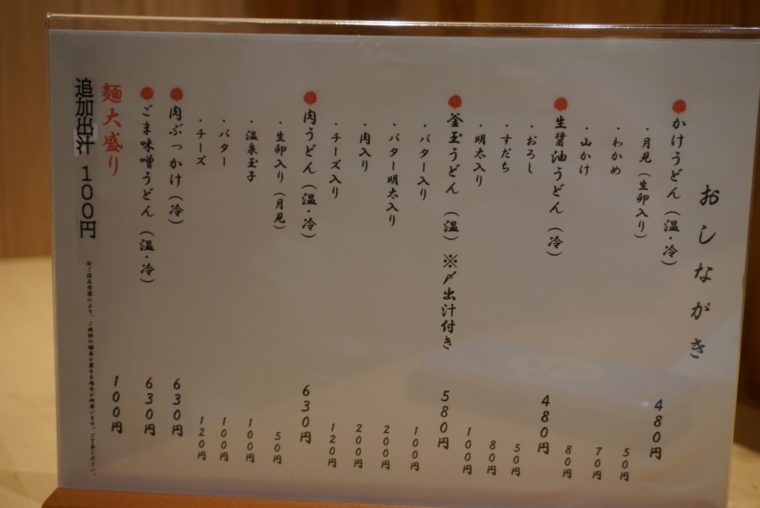 おしながき
●かけうどん（温・冷） 480円
・月見（生卵入り） 50円
・わかめ 70円
・山かけ 80円
●生醤油うどん（冷） 480円
・おろし 50円
・すだち 80円
・明太入り 100円
●釜玉うどん（温）※〆出汁付き 580円
・バター入り 100円
・バター明太入り 200円
・肉入り 200円
・チーズ入り 120円
●肉うどん（温・冷） 630円
・生卵入り（月見） 50円
・温泉玉子 100円
・バター 100円
・チーズ 120円
●肉ぶっかけ（冷） 630円
●ごま味噌うどん（温・冷） 630円
麺大盛り 100円
追加出汁 100円